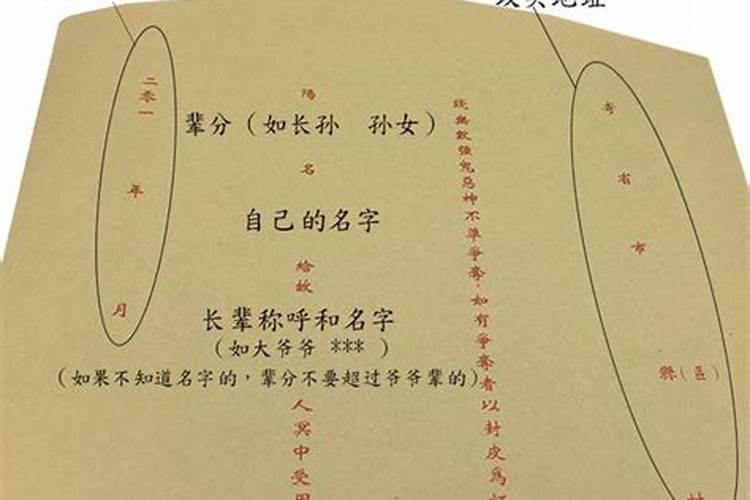 地址
省市縣(區)
強鬼惡神不準爭奪,如有爭奪者以封皮爲
陽
辈分（如长孙　孙女）
名
自己的名字
給故
长辈称呼和名字
（如大爷爷 *** ）
（如果不知道名字的，辈分不要超过爷爷辈的）
人冥中受用
二零一年月